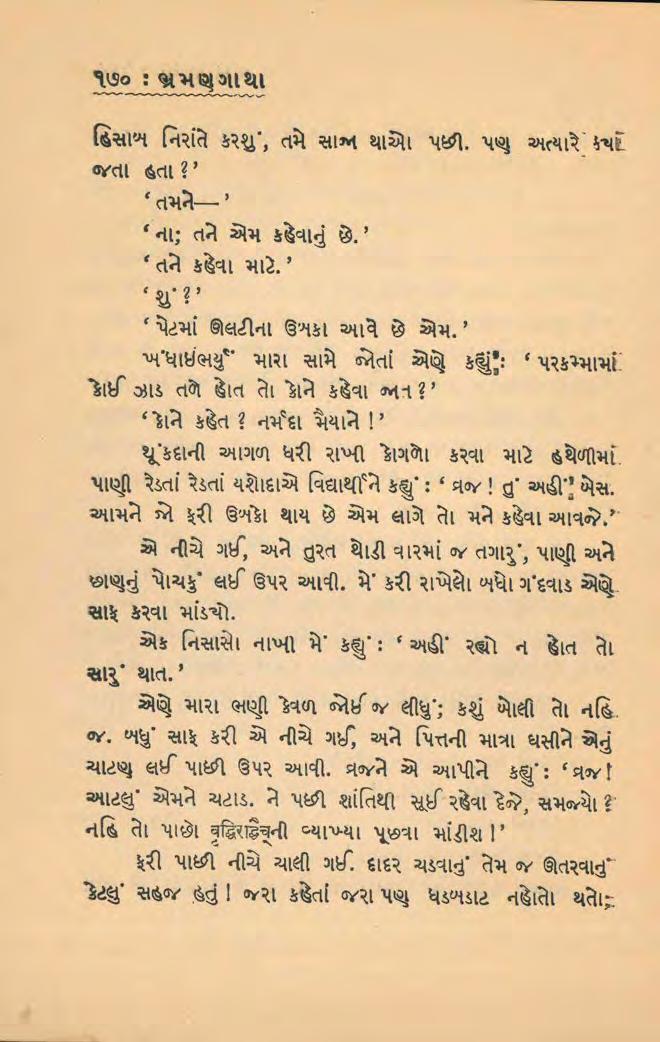 ૧૭૦ : ભ્રમણગાથા
હિસાબ નિરાંતે કરશું, તમે સાજા થાઓ પછી. પણ અત્યારે ક્યાં
જતા હતા ?’
‘ તમને— ’
‘ ના; તને એમ કહેવાનું છે. ’
‘ તને કહેવા માટે. ’
‘ શું ? ’
‘ પેટમાં ઊલટીના ઉબકા આવે છે એમ. ’
ખંધાઈભર્યું મારા સામે જોતાં એણે કહ્યું : ‘ પરકમ્મામાં
કોઈ ઝાડ તળે હોત તો કોને કહેવા જાત ?’
‘ કોને કહેત ? નર્મદા મૈયાને !’
થૂંકદાની આગળ ધરી રાખી કોગળો કરવા માટે હથેળીમાં
પાણી રેડતાં રેડતાં યશોદાએ વિદ્યાર્થીને કહ્યું : ‘ વ્રજ ! તું અહીં બેસ.
આમને જો ફરી ઉબકો થાય છે એમ લાગે તો મને કહેવા આવજે.’
એ નીચે ગઈ, અને તુરત થોડી વારમાં જ તગારું, પાણી અને
છાણનું પોચકું લઈ ઉપર આવી. મેં કરી રાખેલો બધો ગંદવાડ એણે
સાફ કરવા માંડ્યો.
એક નિસાસો નાખી મેં કહ્યું : ‘ અહીં રહ્યો ન હોત તો
સારું થાત. ’
એણે મારા ભણી કેવળ જોઈ જ લીધું; કશું બોલી તો નહિ
જ. બધું સાફ કરી એ નીચે ગઈ, અને પિત્તની માત્રા ઘસીને એનું
ચાટણ લઈ પાછી ઉપર આવી. વ્રજને એ આપીને કહ્યું : ‘ વ્રજ !
આટલું એમને ચટાડ. ને પછી શાંતિથી સૂઈ રહેવા દેજે, સમજ્યો ?
નહિ તો પાછો वृद्धिरादैच्ની વ્યાખ્યા પૂછવા માંડીશ !’
ફરી પાછી નીચે ચાલી ગઈ. દાદર ચડવાનું તેમ જ ઊતરવાનું
કેટલું સહજ હતું ! જરા કહેતાં જરા પણ ધડબડાટ નહોતો થતો;